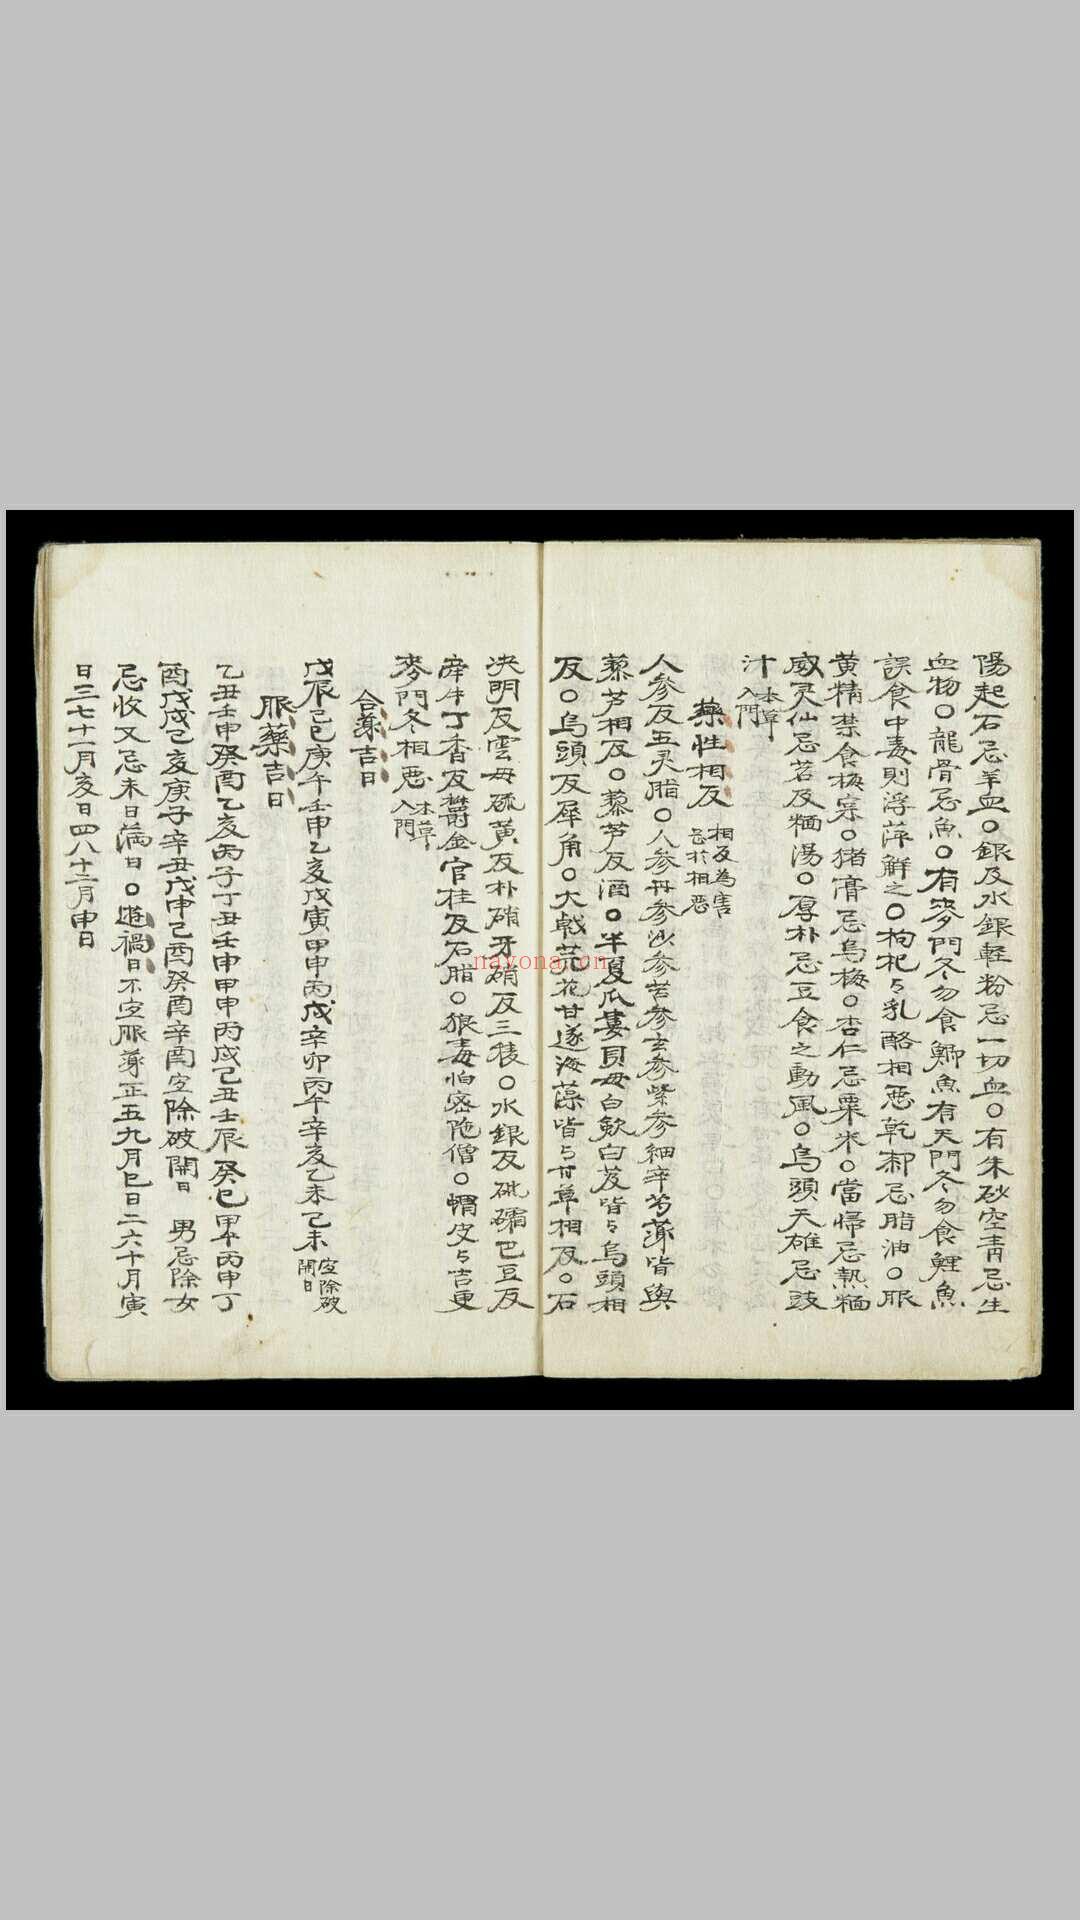 陽起石忌羊血○銀及水銀軽粉忌一切血○有朱砂空青忌生
血物○龍骨忌魚○有麥門冬勿食鯽魚有天門冬勿食鯉魚
誤食中毒則浮萍解之○枸杞与乳酪相惡乾柹忌脂油○服
黄精禁食梅宲○猪膏忌烏梅○杏仁忌粟米○當帰忌熱麺
威灵仙忌茗及麺湯○厚朴忌豆食之動風○烏頭天雄忌豉
汁 本草入門
藥性相反 相反為害甚於相惡
人参反五灵脂○人参丹参沙参苦参玄参紫参細辛芍薬皆與
藜芦相反○藜芦反酒○半夏瓜蔞貝母白歛白芨皆与烏頭相
反○烏頭反犀角○大戟芫花甘遂海藻皆与甘草相反○石
決明反雲母硫黄反朴硝牙硝反三稜○水銀反砒礵巴豆反
牽牛丁香反欝金官桂反石脂○狼毒怕密陀僧○蝟皮与吉更
麥門冬相惡 本草入門
合薬吉日
戊辰己巳庚午壬申乙亥戊寅甲申丙戌辛卯丙午辛亥乙未己未 宜除破開日
服藥吉日
乙丑壬申癸酉乙亥丙子丁丑壬申甲申丙戌己丑壬辰癸巳甲午丙申丁
酉戊戌己亥庚子辛丑戊申己酉癸酉辛酉宜除破開日 男忌除女
忌收又忌未日満日○遊禍日不宜服薬正五九月巳日二六十月寅
日三七十一月亥日四八十二月申日
nayona.cn